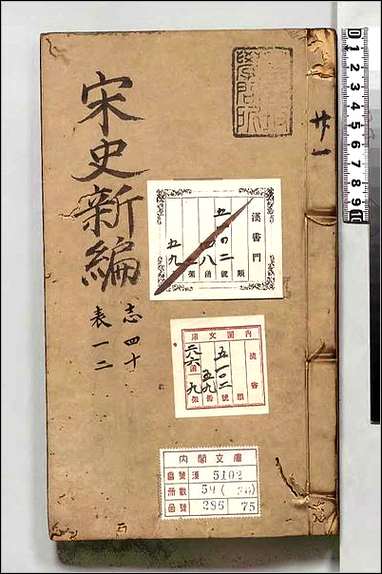 宋史新編
志四十
表一二
廿一
漢書門
類
五一〇二號
函
架
五九冊
內閣文庫
漢書
五一〇二號
五九冊
二八六函
九架
內閣文庫
番號 漢 5102
冊數 59(20)
函號 286 75
1 2 3 4 5 6 7 8 9 10